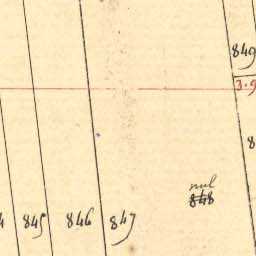 849
3.9
nul
848
845
846
847